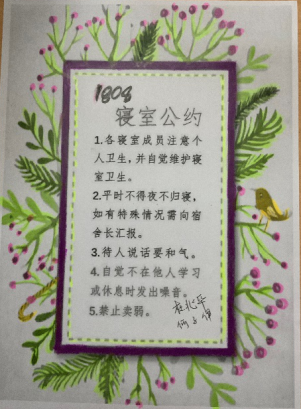 1808
寝室公约
1.各寝室成员注意个
人卫生，并自觉维护寝
室卫生。
2.平时不得夜不归寝，
如有特殊情况需向宿
舍长汇报。
3.待人说话要和气。
4.自觉不在他人学习
或休息时发出噪音。
5.禁止卖弱。